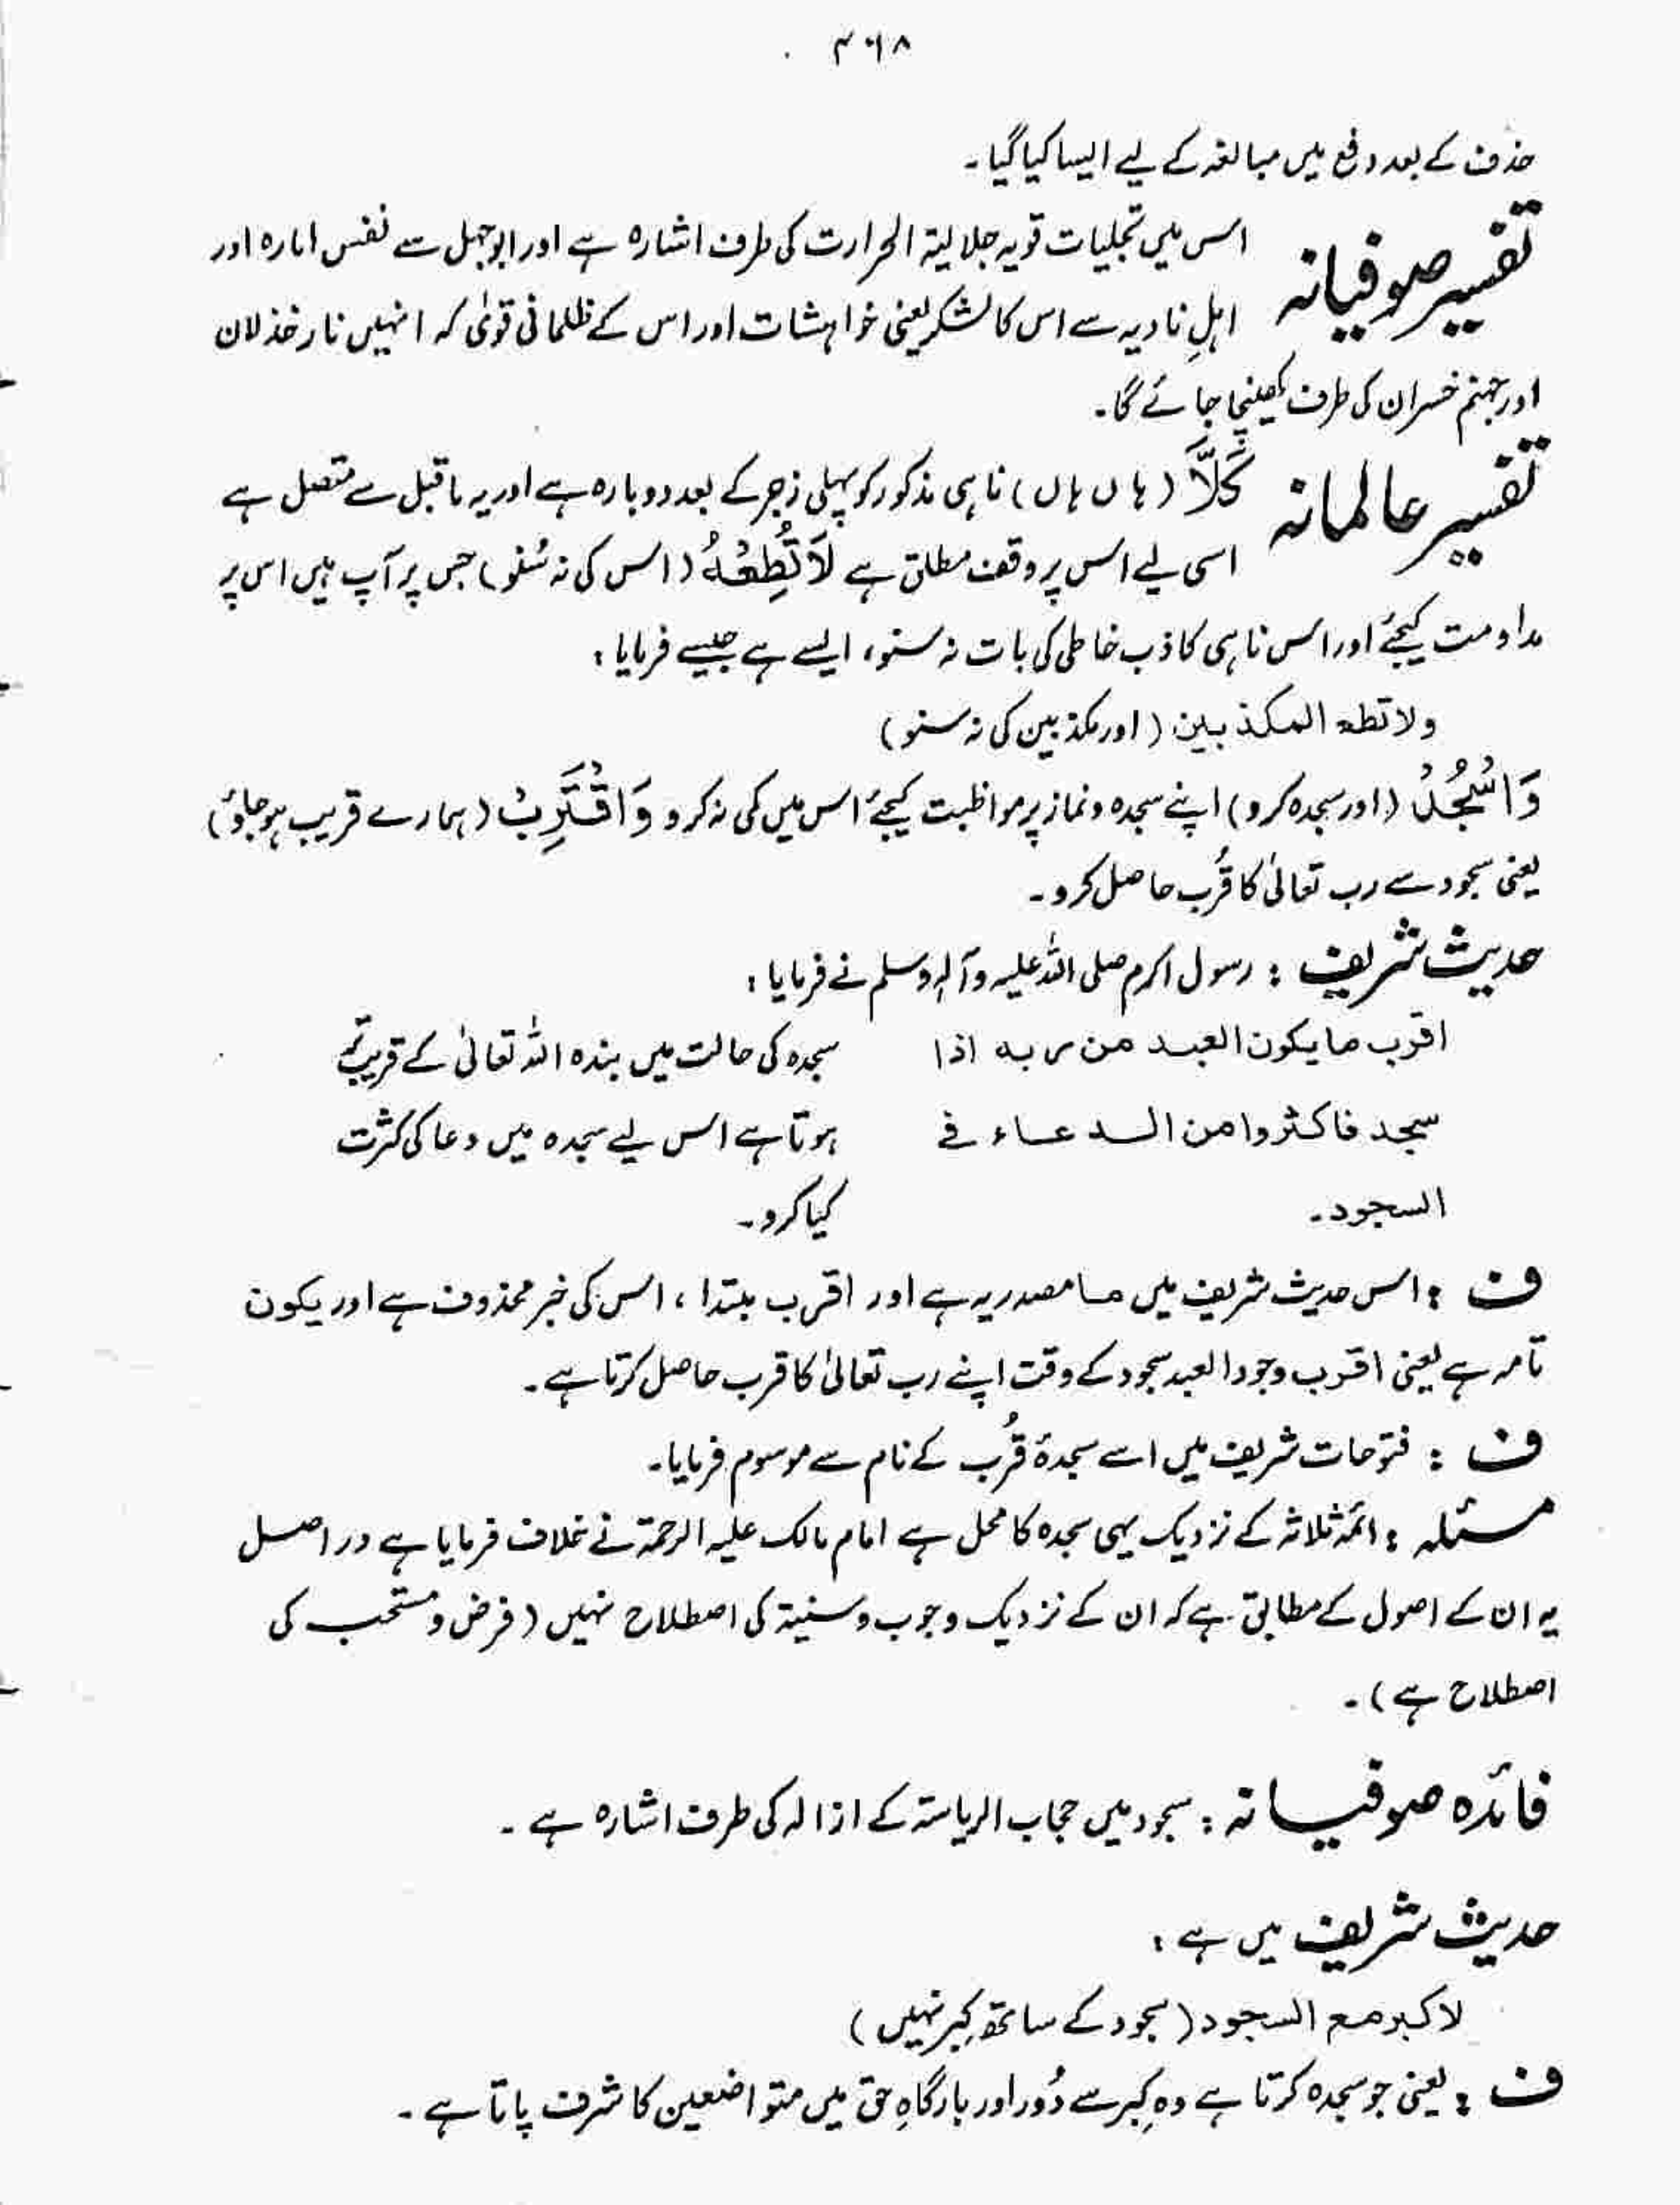 حذف کے بعد رفع میں مبالغہ کے لیے ایسا کیا گیا۔
تفسیر صوفیانہ اس میں تجلیات قویہ جلالیۃ الحرارت کی طرف اشارہ ہے اور ابوجہل سے نفس امارہ اور
اہلِ نادیہ سے اس کا لشکر یعنی خواہشات اور اس کے ظلمانی قویٰ کہ انہیں نار خذلان
اور جہنم خسران کی طرف کھینچا جائے گا۔
تفسیر عالمانہ كَلَّا (ہاں ہاں) ناہی مذکور کو پہلی زجر کے بعد دوبارہ ہے اور یہ ماقبل سے متصل ہے
اسی لیے اس پر وقف مطلق ہے لَا تُطِعْهُ (اس کی نہ سُنو) جس پر آپ ہیں اس پر
مداومت کیجئے اور اس ناہی کاذب خاطی کی بات نہ سنو، ایسے ہے جیسے فرمایا:
ولا تطع المکذبین (اور مکذبین کی نہ سنو)
وَاسْجُدْ (اور سجدہ کرو) اپنے سجدہ و نماز پر مواظبت کیجئے اس میں کمی نہ کرو وَاقْتَرِبْ (ہمارے قریب ہو جاؤ)
یعنی سجود سے رب تعالیٰ کا قُرب حاصل کرو۔
حدیث شریف : رسول اکرم صلی اللہ علیہ وآلہٖ وسلم نے فرمایا :
اقرب ما یکون العبد من ربہ اذا سجدہ کی حالت میں بندہ اللہ تعالیٰ کے قریب تر
سجد فاکثروا من الدعاء فی ہوتا ہے اس لیے سجدہ میں دعا کی کثرت
السجود۔ کیا کرو۔
ف : اس حدیث شریف میں ما مصدریہ ہے اور اقرب مبتدا ، اس کی خبر محذوف ہے اور یکون
تامہ ہے یعنی اقرب وجود العبد سجود کے وقت اپنے رب تعالیٰ کا قرب حاصل کرتا ہے۔
ف : فتوحات شریف میں اسے سجدۂ قُرب کے نام سے موسوم فرمایا۔
مسئلہ : ائمہ ثلاثہ کے نزدیک یہی سجدہ کا محل ہے امام مالک علیہ الرحمۃ نے خلاف فرمایا ہے دراصل
یہ ان کے اصول کے مطابق ہے کہ ان کے نزدیک وجوب و سنیۃ کی اصطلاح نہیں (فرض و مستحب کی
اصطلاح ہے)۔
فائدہ صوفیانہ : سجود میں حجاب الریاسۃ کے ازالہ کی طرف اشارہ ہے ۔
حدیث شریف میں ہے :
لا کبر مع السجود (سجود کے ساتھ کبر نہیں)
ف : یعنی جو سجدہ کرتا ہے وہ کبر سے دُور اور بارگاہِ حق میں متواضعین کا شرف پاتا ہے ۔